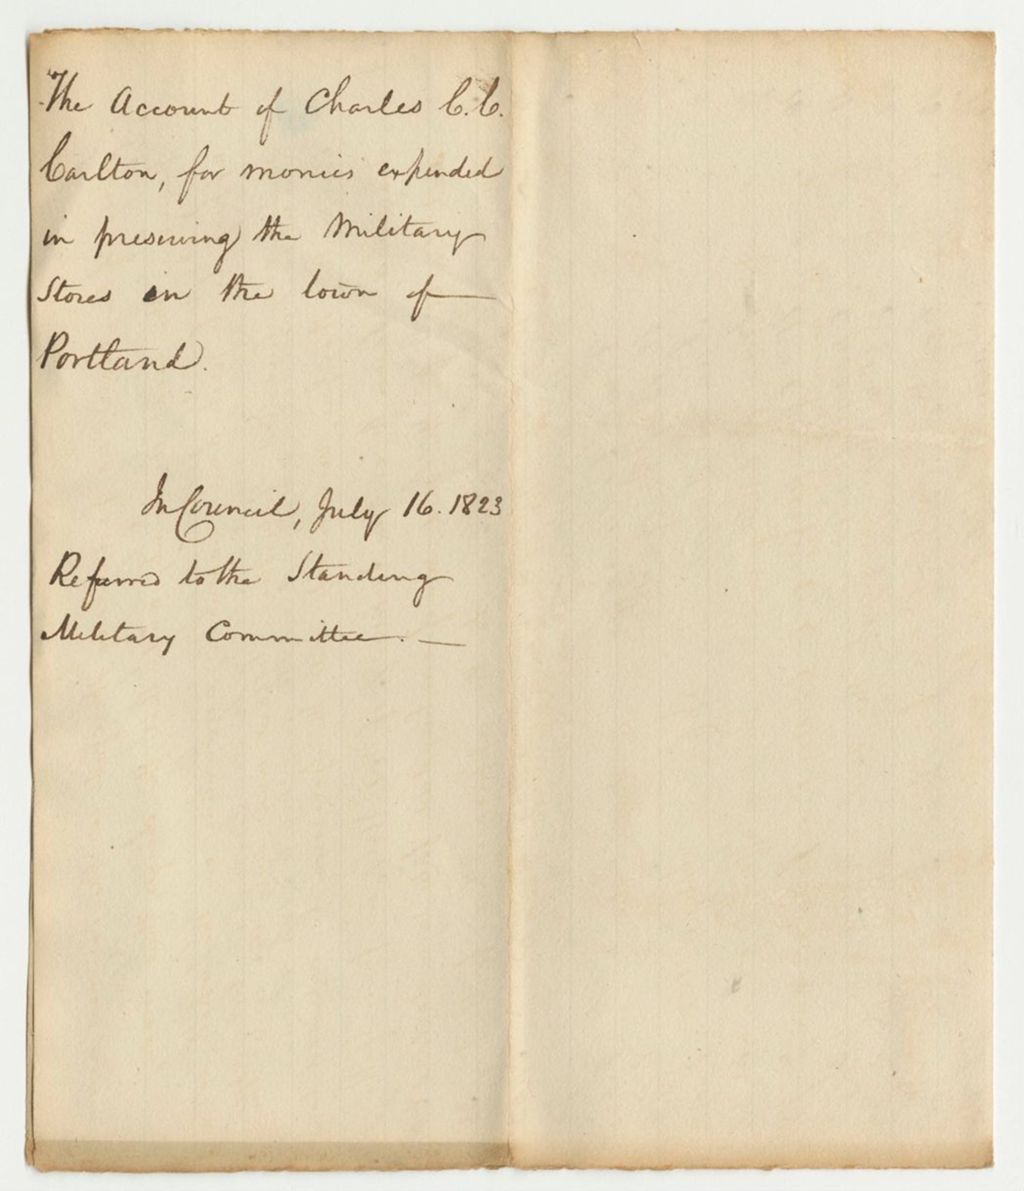 The Account of Charles C. C.
Carlton, for monies expended
in preserving the Military
Stores in the town of
Portland.
In Council, July 16. 1823
Referred to the Standing
Military Committee.